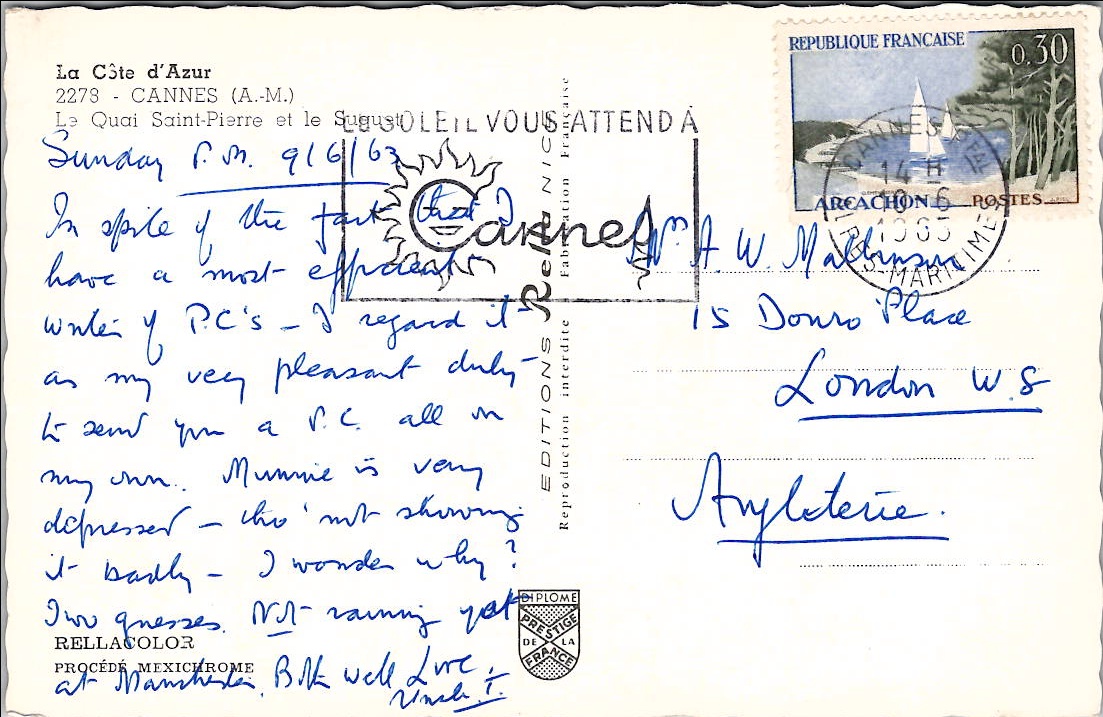 La Côte d'Azur
2278 - CANNES (A.-M.)
Le Quai Saint-Pierre et le Suquet
Sunday P.M. 9/6/63
In spite of the fact that I
have a most efficient
writer of P.C's - I regard it
as my very pleasant duty
to send you a P.C. all on
my own. Mummie is very
depressed - tho' not showing
it badly - I wonder why?
Two guesses. Not raining yet
at Manchester. Both well Love,
Uncle T.
RELLACOLOR
PROCÉDÉ MEXICHROME
LE SOLEIL VOUS ATTEND À
Cannes
EDITIONS Rella NICE
Reproduction interdite Fabrication Française
DIPLOME
PRESTIGE
DE LA
FRANCE
REPUBLIQUE FRANÇAISE
0,30
ARCACHON POSTES
CANNES
14 H
10-6
1963
ALPES-MARITIMES
A. W. Mallinson
15 Douro Place
London W.8
Angleterre.